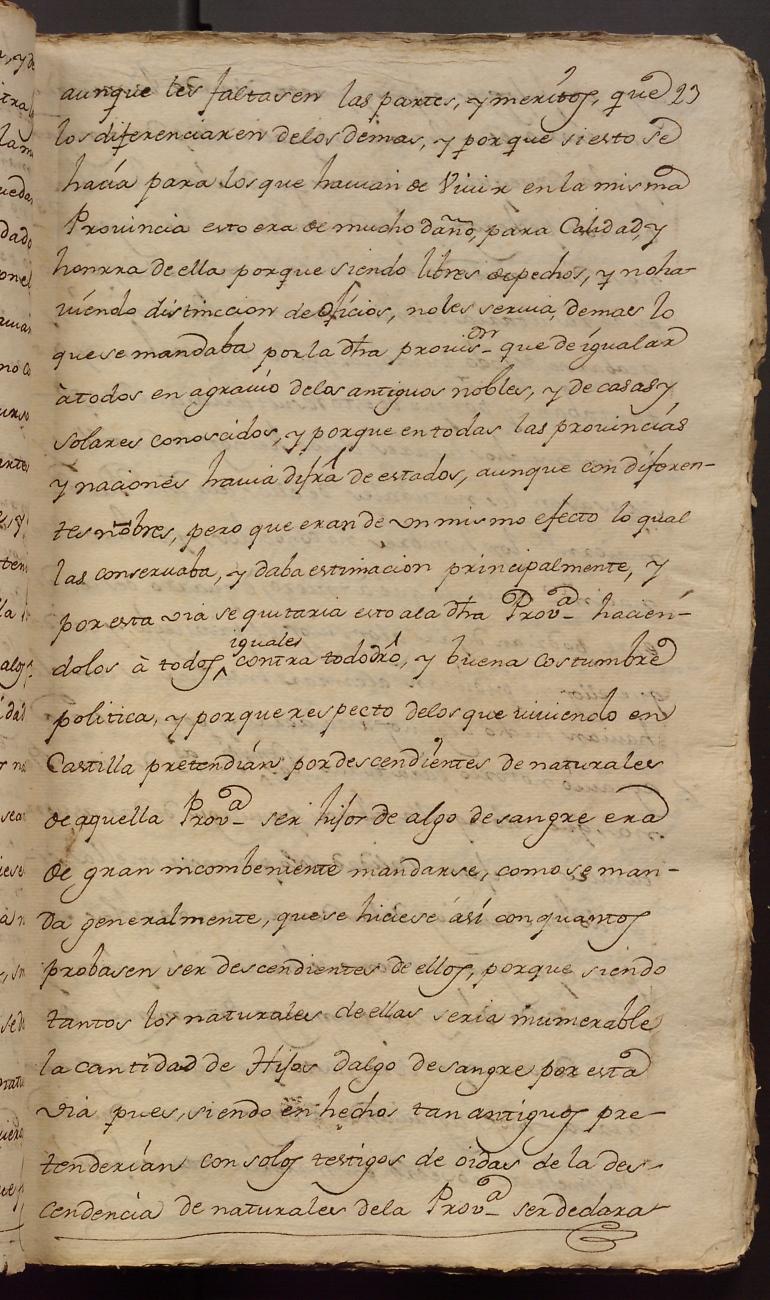 aunque les faltasen las partes, y meritos, que 23
los diferenciaren de los demas, y porque si esto se
hacia para los que havian de Vivir en la misma
Provincia esto era de mucho daño, para Calidad, y
honrra de ella porque siendo libres de pechos, y no ha-
viendo distinccion de oficios, no les servia, demas lo
que se mandaba por la dha provison que de igualar
à todos en agravio de los antiguos nobles, y de casas y
solares conoscidos, y porque en todas las provincias
y naciones havia difra de estados, aunque con diferen-
tes nobres, pero que eran de un mismo efecto lo qual
las conservaba, y daba estimacion principalmente, y
por esta via se quitaria esto a la dha Prova hacien-
dolos à todos iguales contra todo dro, y buena costumbre
politica, y porque respecto de los que viviendo en
Castilla pretendian por descendientes de naturales
de aquella Prova ser hijos de algo de sangre era
de gran incombeniente mandarse, como se man-
da generalmente, que se hiciese ási con quantos
probasen ser descendientes de ellos, porque siendo
tantos los naturales de ellas seria inumerable
la cantidad de Hijos dalgo de sangre por esta
via pues, siendo en hechos tan antiguos pre-
tenderian con solos testigos de oidas de la des-
cendencia de naturales de la Prova ser declara-